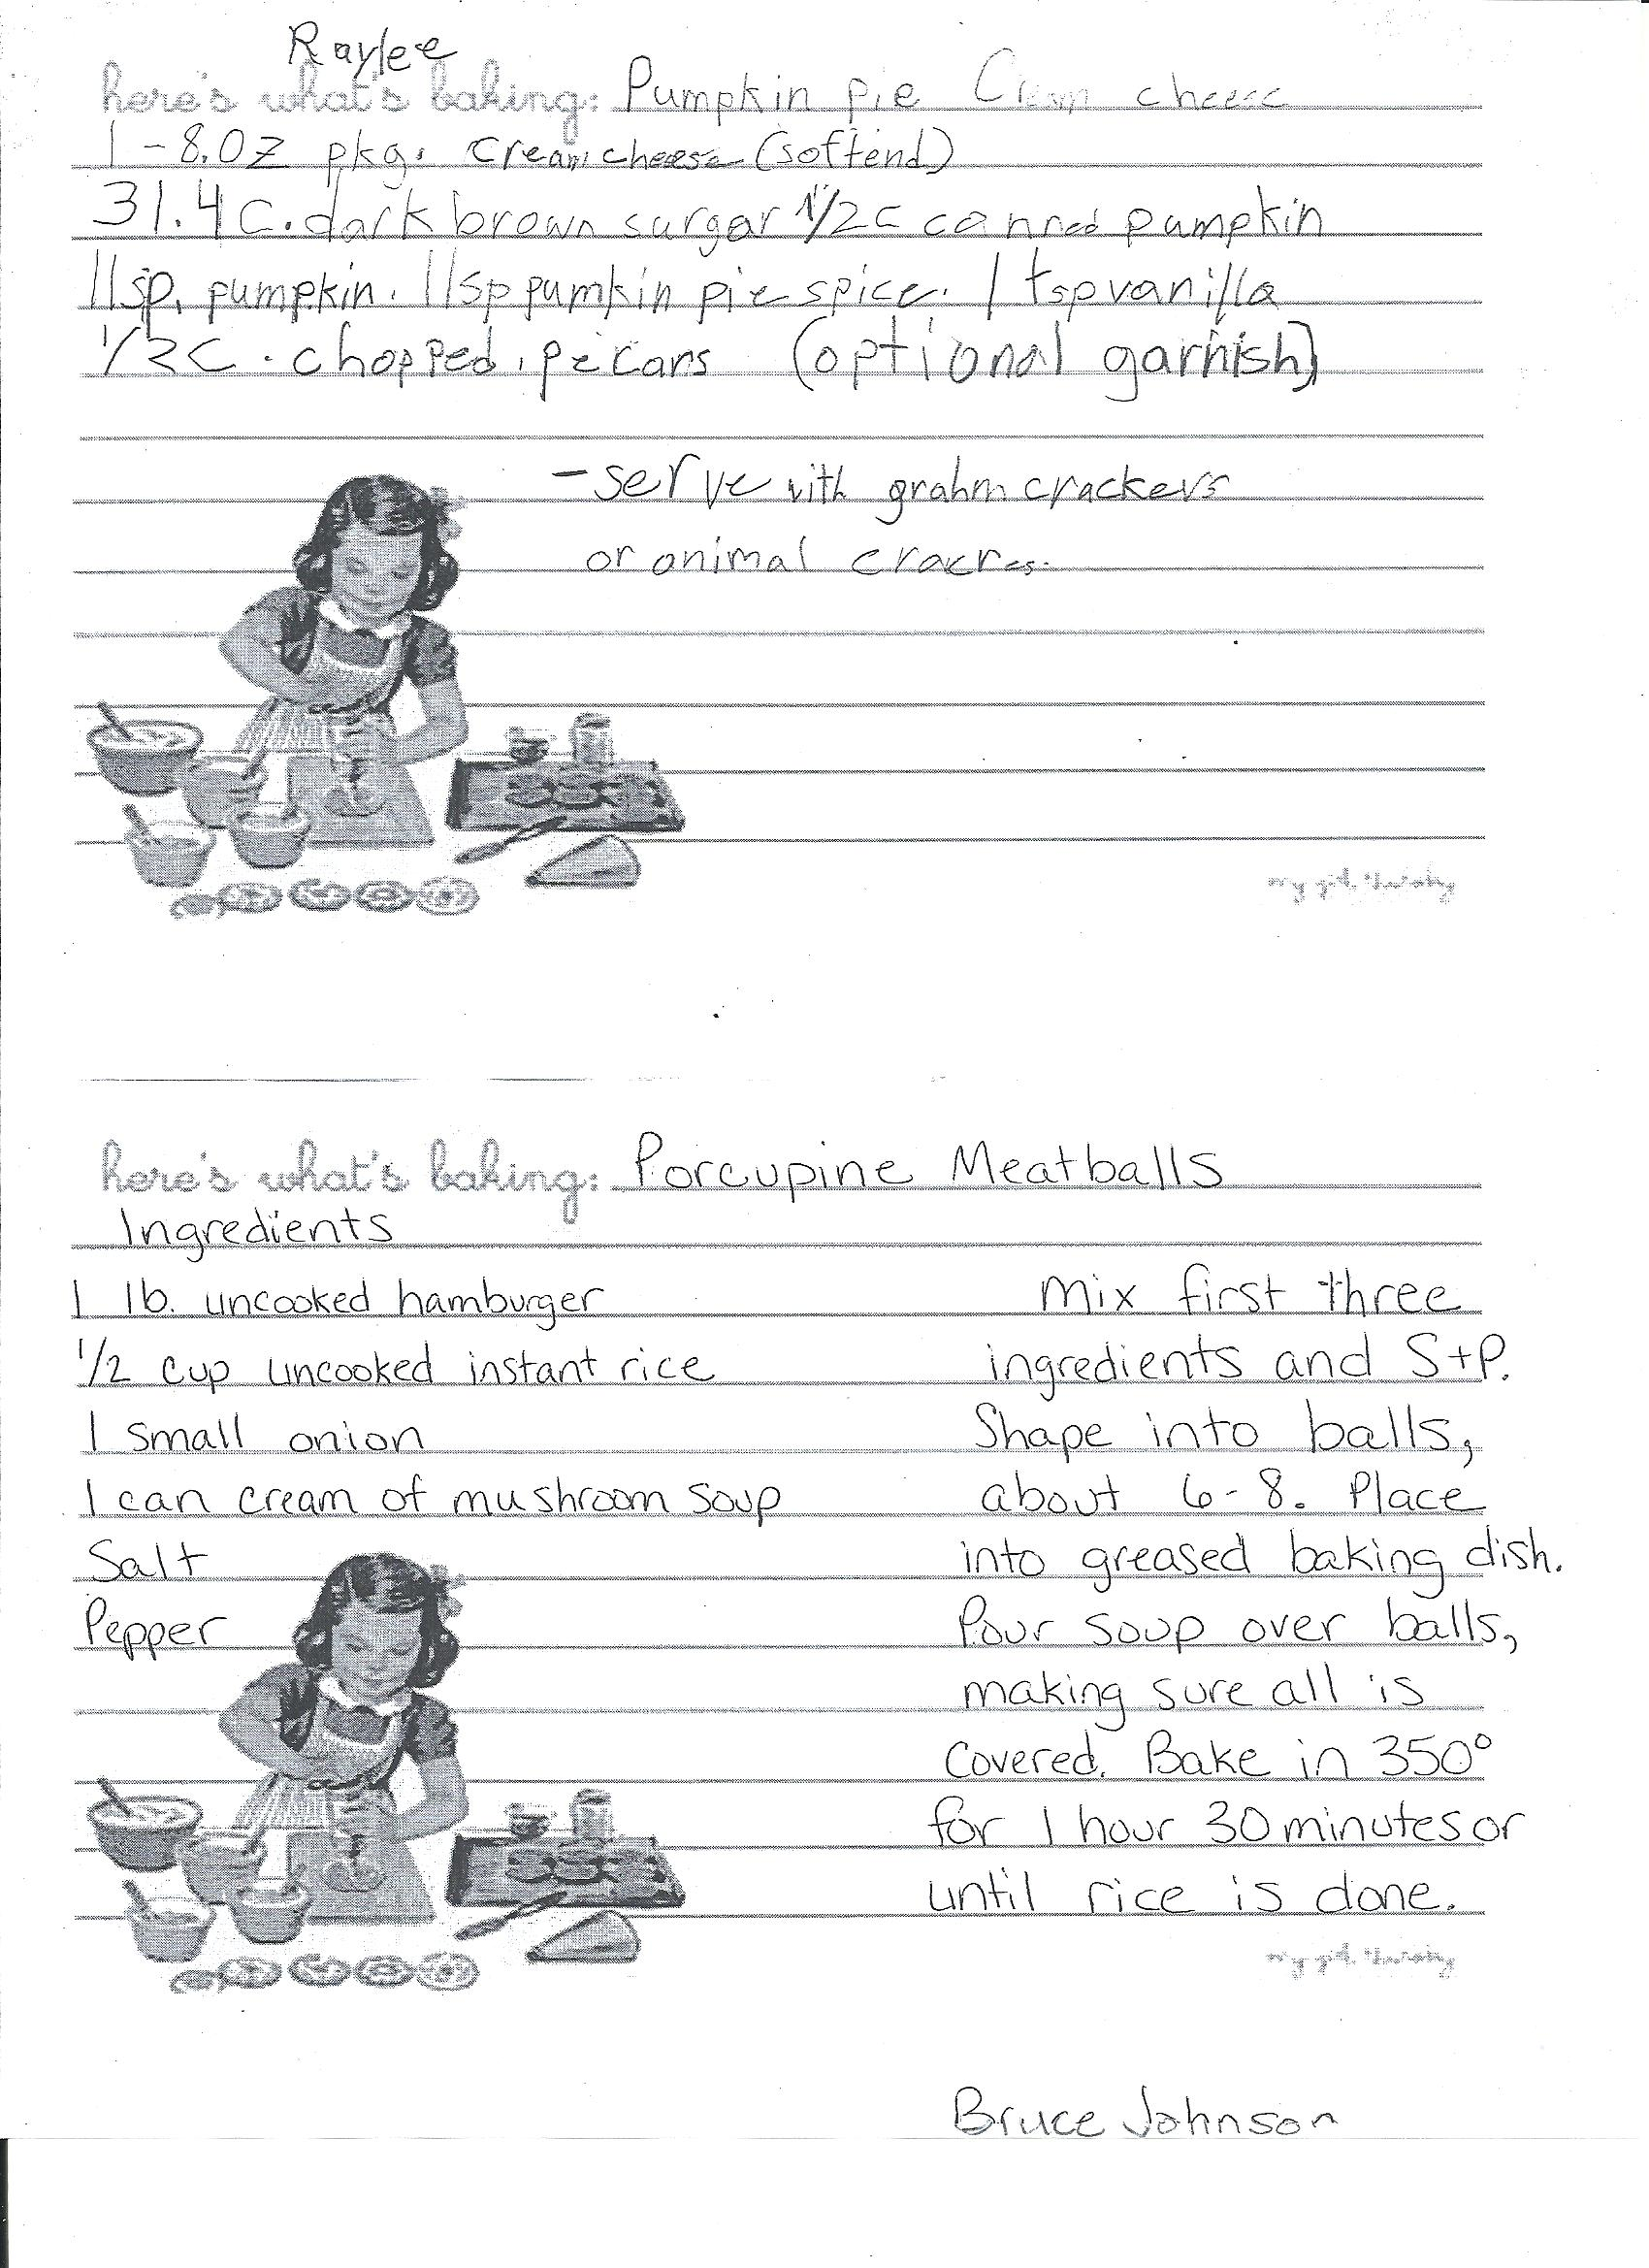 Raylee
here's what's baking: Pumpkin pie Cream cheese
1 - 8.0z pkg. cream cheese (softend)
31.4 C. dark brown surgar 1/2 c canned pumpkin
1 lsp. pumpkin. 1 lsp pumkin pie spice. 1 tsp vanilla
1/2 C. chopped. pecans (optional garnish)
- serve with grahm crackers
or animal cracres.
here's what's baking: Porcupine Meatballs
Ingredients
1 lb. uncooked hamburger
1/2 cup uncooked instant rice
1 small onion
1 can cream of mushroom soup
Salt
Pepper
Mix first three
ingredients and S+P.
Shape into balls,
about 6-8. Place
into greased baking dish.
Pour soup over balls,
making sure all is
covered. Bake in 350°
for 1 hour 30 minutes or
until rice is done.
Bruce Johnson